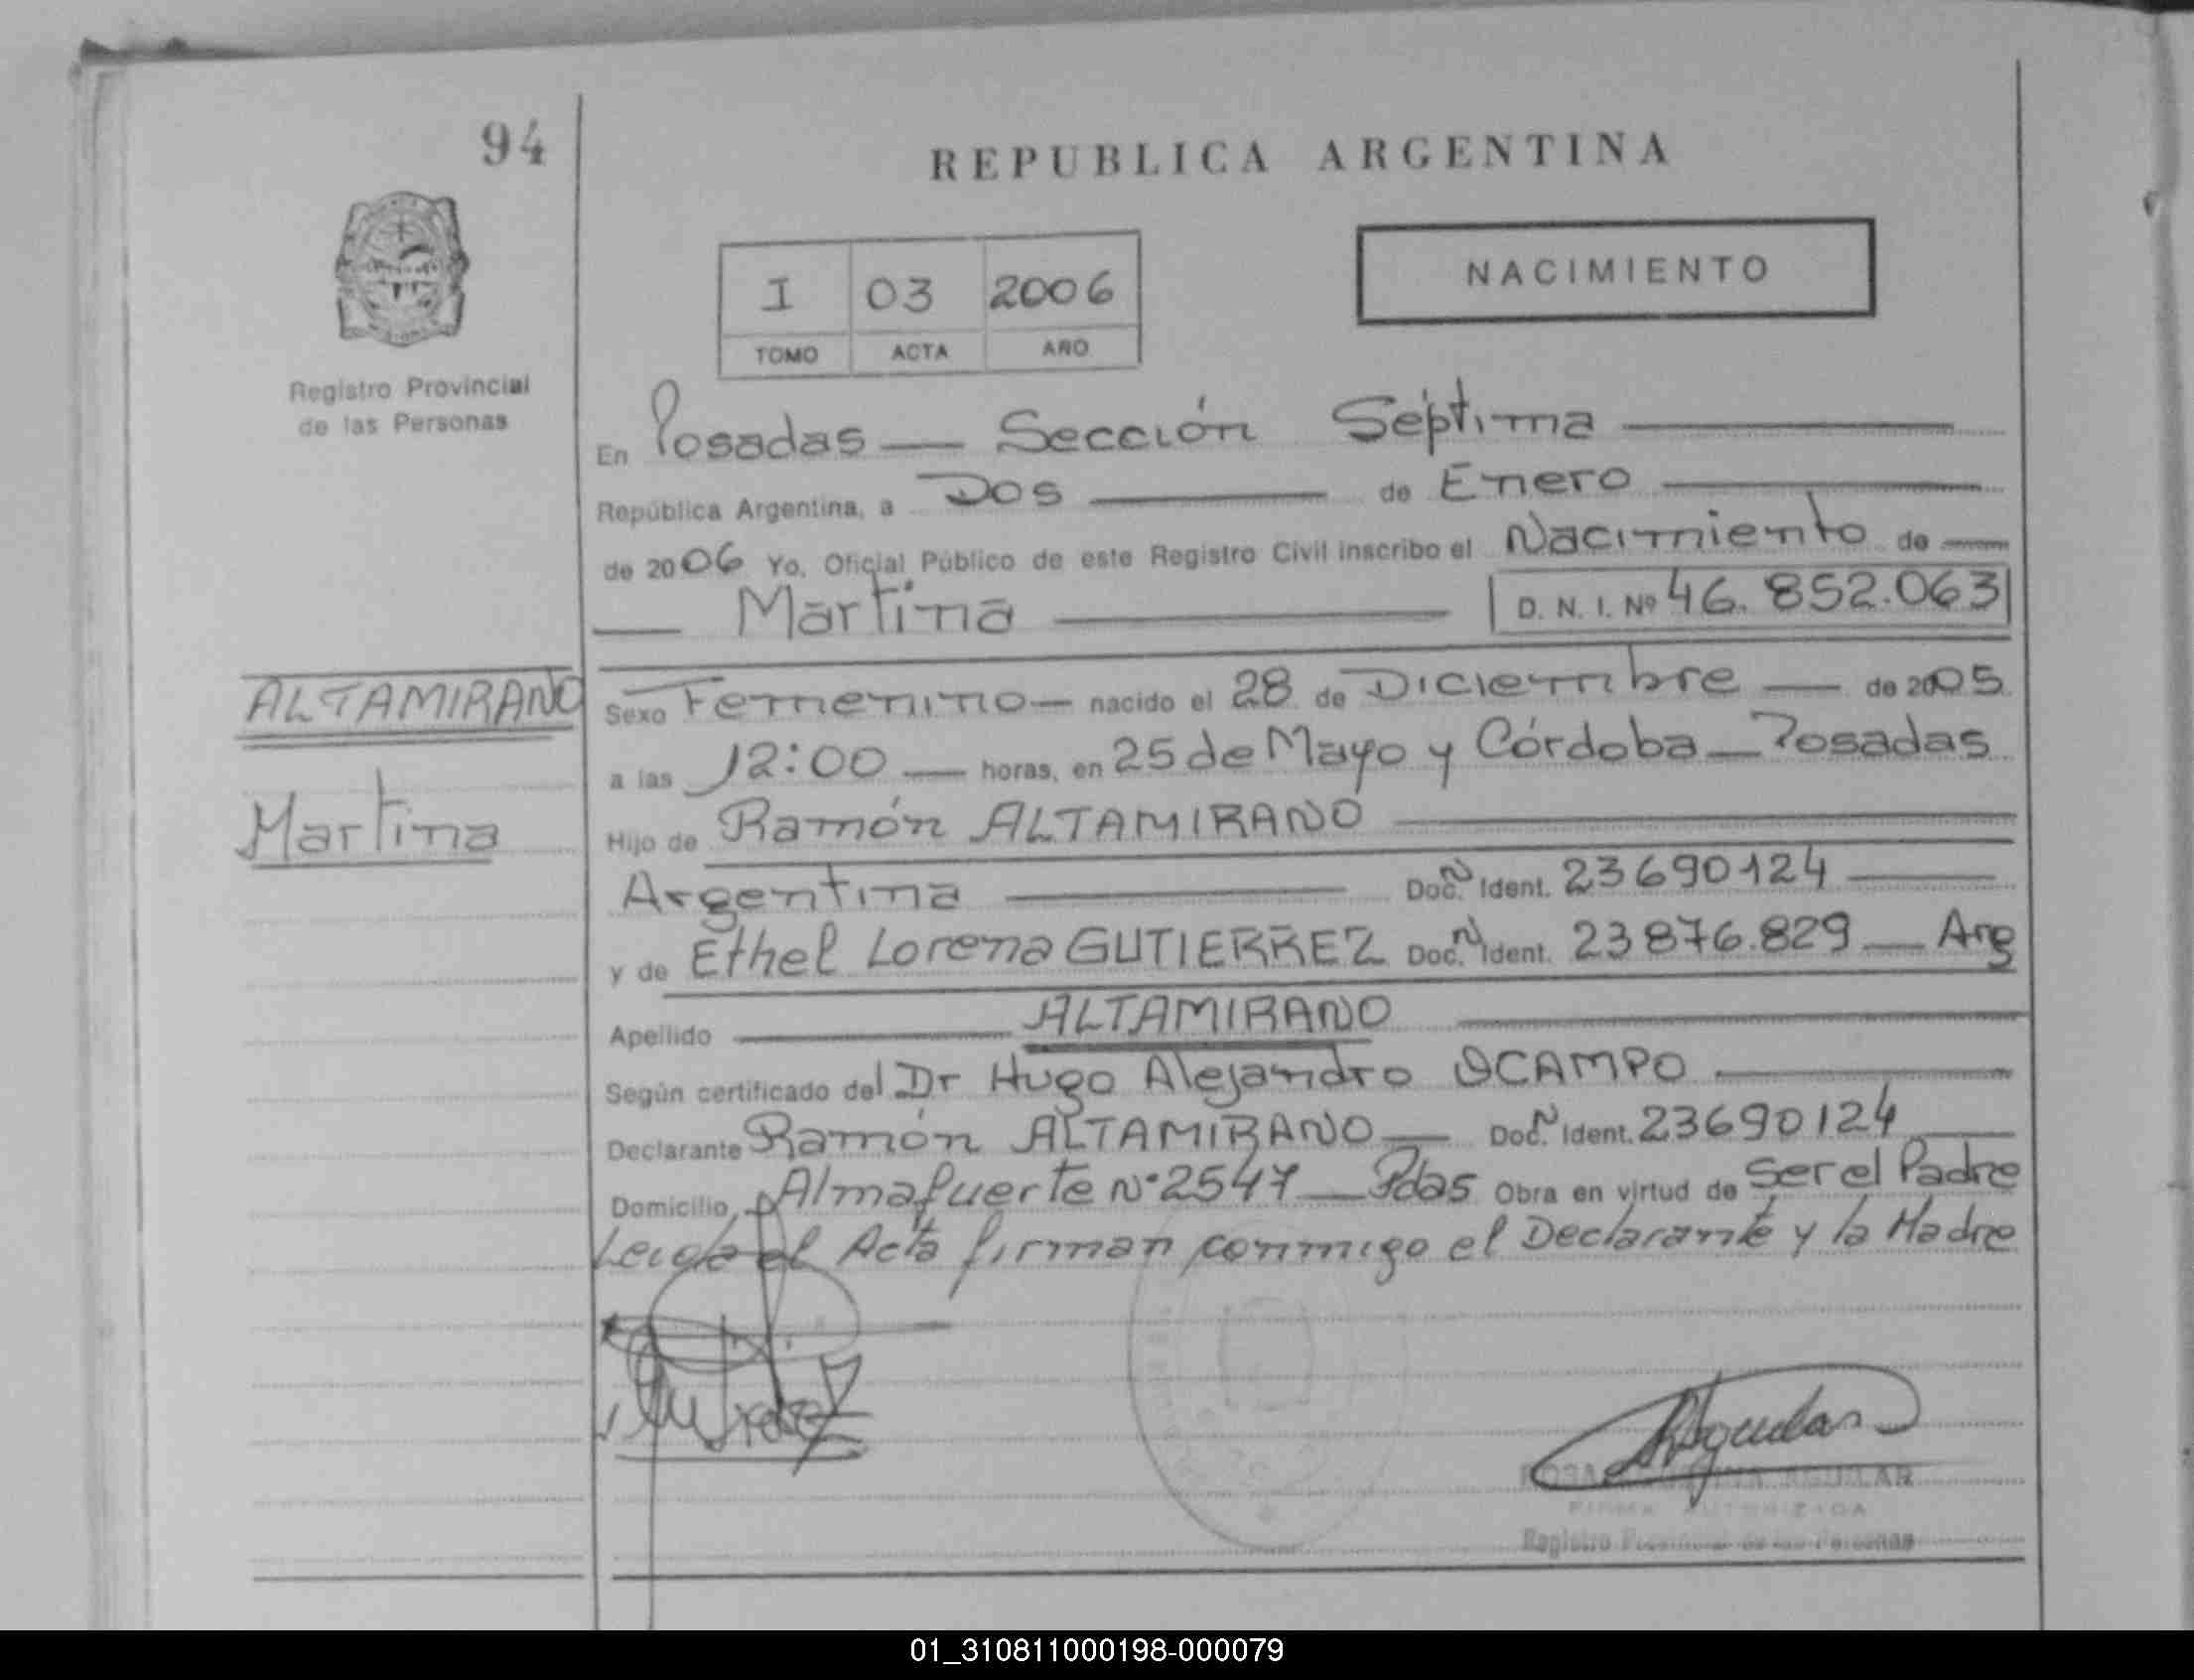 94
REPUBLICA ARGENTINA
NACIMIENTO
I 03 2006
TOMO ACTA AÑO
Registro Provincial
de las Personas
En Posadas — Sección Séptima —
República Argentina, a Dos — de Enero —
de 2006 Yo, Oficial Público de este Registro Civil inscribo el Nacimiento de —
— Martina — D. N. I. Nº 46.852.063
ALTAMIRANO
Martina
Sexo Femenino — nacido el 28 de Diciembre — de 2005
a las 12:00 — horas, en 25 de Mayo y Córdoba — Posadas
Hijo de Ramón ALTAMIRANO —
Argentina — Doc. N Ident. 23690124 —
y de Ethel Lorena GUTIERREZ Doc. N Ident. 23876.829 — Arg
Apellido — ALTAMIRANO —
Según certificado del Dr Hugo Alejandro OCAMPO —
Declarante Ramón ALTAMIRANO — Doc. N Ident. 23690124
Domicilio Almafuerte Nº 2547 — Pdas Obra en virtud de Ser el Padre
Leida el Acta firman conmigo el Declarante y la Madre
AGUILAR
FIRMA AUTORIZADA
Registro Provincial de las Personas
01_310811000198-000079